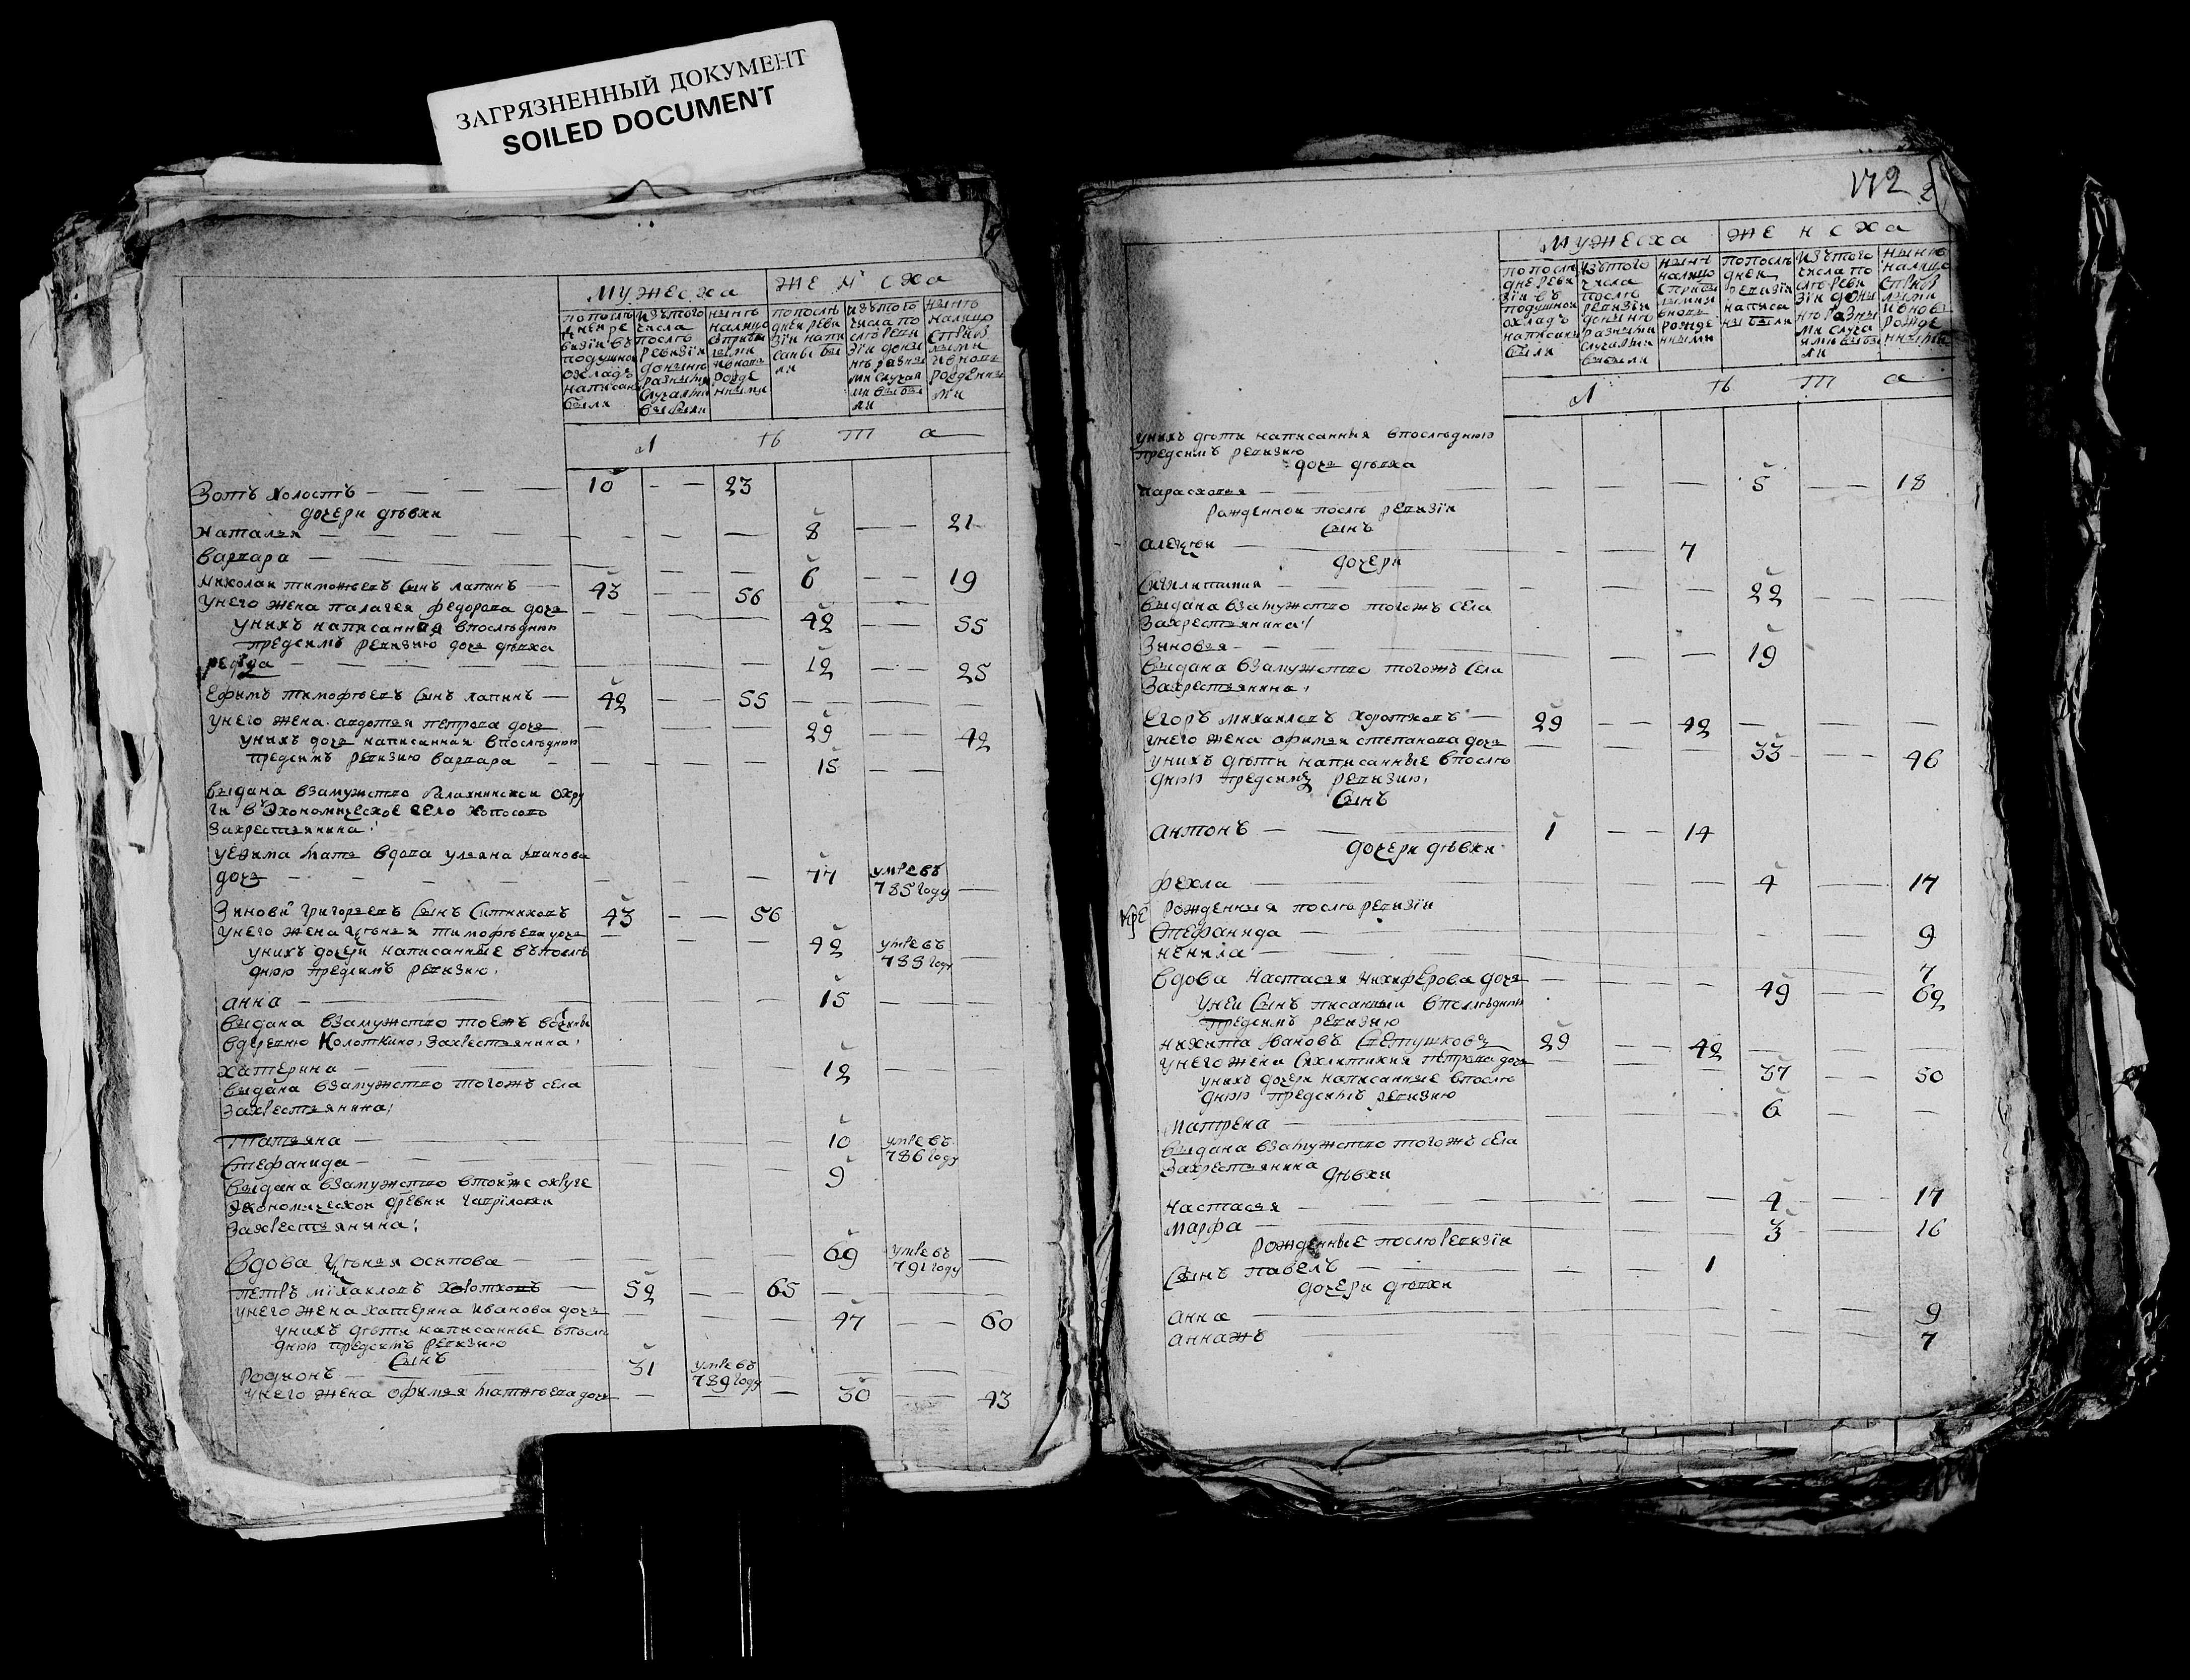 ЗАГРЯЗНЕННЫЙ ДОКУМЕНТ
SOILED DOCUMENT
мужеска женска
по последней ревизiи въ подушной окладъ написаны были
изъ того числа послѣ ревизiи донынѣ разными случаями выбыли
нынѣ налицо
по последней ревизiи написаны были
изъ того числа послѣ ревизiи донынѣ разными случаями выбыли
нынѣ налицо
лѣта
Зотъ холостъ 10 23
дочери дѣвки
наталья 8 21
варвара 6 19
николаи тимофѣевъ сынъ лапинъ 43 56
у него жена палагея федорова дочь 42 55
у нихъ написанная в последнюю
предсимъ ревизию дочь дѣвка
12 25
ефимъ тимофѣевъ сынъ лапинъ 42 55
у него жена авдотья петрова дочь 29 42
у нихъ дочь написанная в последнюю
предсимъ ревизию варвара 15
выдана взамужство балахнинскои окру
ги в экономическое село
закрестьянина
уефима мать вдова ульяна иванова
дочь 77 умре въ 785 году
Зиновеи григорьевъ сынъ ситниковъ 43 56
у него жена тимофѣева дочь 42 умре въ
у нихъ дочери написанные въ послѣ
днюю предсимъ ревизию
анна 15
выдана взамужство тоежъ вотчины
вдеревню колоткино закрестьянина
катерина 12
выдана взамужство тогожъ села
закрестьянина
татьяна 10 умре въ 786 году
стефанида 9
выдана взамужство втоиже округе
экономическои древни
закрестьянина
вдова осипова 69 умре въ 791 году
петръ михаиловъ коротковъ 52 65
у него жена катерина иванова дочь 47 60
у нихъ дѣти написанные в послѣ
днюю предсимъ ревизию
сынъ
родионъ 31 умре въ 789 году
у него жена офимья матвѣева дочь 30 43
172
мужеска женска
по последней ревизiи въ подушной окладъ написаны были
изъ того числа послѣ ревизiи донынѣ разными случаями выбыли
нынѣ налицо
по последней ревизiи написаны были
изъ того числа послѣ ревизiи донынѣ разными случаями выбыли
нынѣ налицо
лѣта
у нихъ дѣти написанныя в последнюю
предсимъ ревизию
дочь дѣвка
парасковья 5 18
рожденнои послѣ ревизiи
сынъ
алексѣи 7
дочери
22
выдана взамужство тогожъ села
закрестьянина
Зиновья 19
выдана взамужство тогожъ села
закрестьянина
егоръ михаиловъ коротковъ 29 42
у него жена офимья степанова дочь 33 46
у нихъ дѣти написанные в послѣ
днюю предсимъ ревизию
сынъ
антонъ 1 14
дочери дѣвки
фекла 4 17
рожденныя послѣ ревизiи
стефанида 9
ненила 7
вдова настасья никифорова дочь 49 62
у неи сынъ писанныи в последнюю
предсимъ ревизию
никита ивановъ 29 42
у него жена петрова дочь 37 50
у нихъ дочери написанные в послѣ
днюю предсимъ ревизию
матрена 6
выдана взамужство тогожъ села
закрестьянина
дѣвки
настасья 4 17
марфа 3 16
рожденные послѣ ревизiи
сынъ павелъ 1
дочери дѣвки
анна 9
аннажъ 7